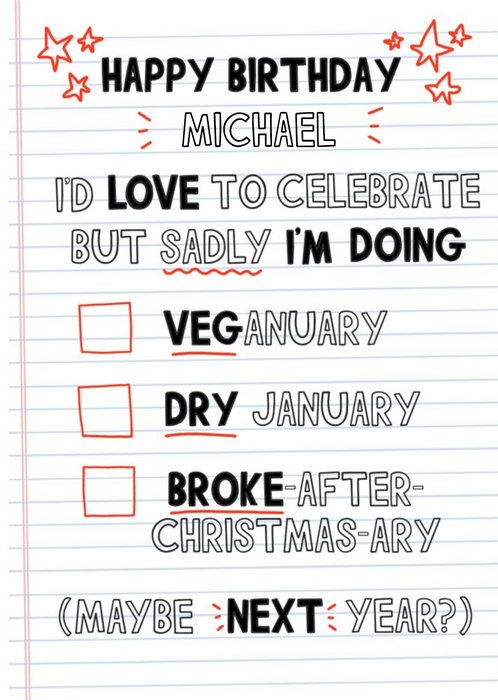 HAPPY BIRTHDAY
MICHAEL
I'D LOVE TO CELEBRATE
BUT SADLY I'M DOING
VEGANUARY
DRY JANUARY
BROKE-AFTER-
CHRISTMAS-ARY
(MAYBE NEXT YEAR?)